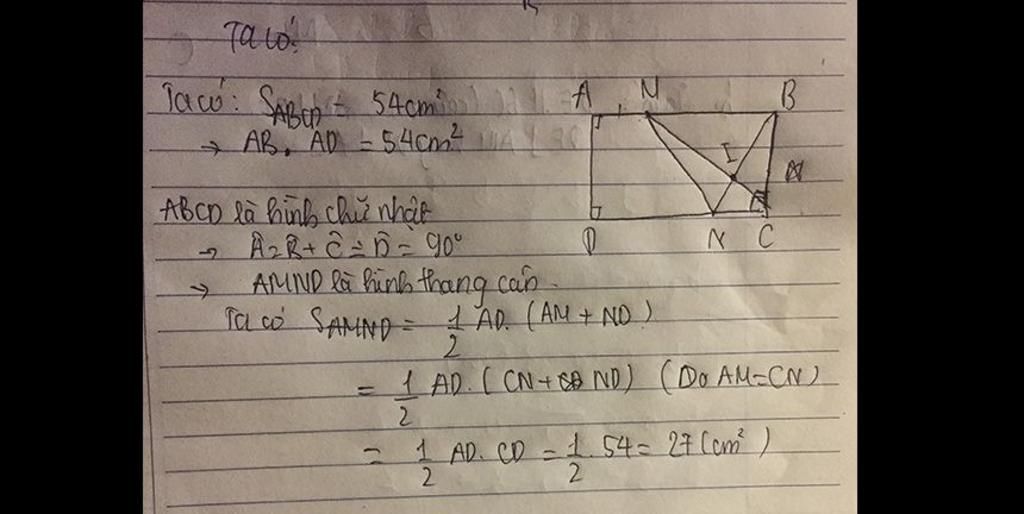 Ta có:
Ta có: SABCD = 54cm²
→ AB. AD = 54cm²
A M B
I
D N C
ABCD là hình chữ nhật
→ Â = B̂ + Ĉ = D̂ = 90°
→ AMND là hình thang cân.
Ta có SAMND = 1/2 AD. (AM + ND)
= 1/2 AD. (CN + ND) (Do AM = CN)
= 1/2 AD. CD = 1/2 . 54 = 27 (cm²)